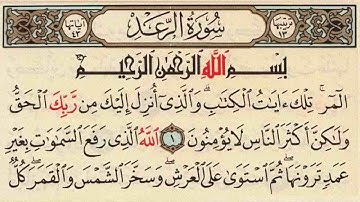 ترتيبها ١٣ سورة الرعد آياتها ٤٣
بِسْمِ اللَّهِ الرَّحْمَٰنِ الرَّحِيمِ
الٓمٓرۚ تِلْكَ ءَايَٰتُ ٱلْكِتَٰبِۗ وَٱلَّذِىٓ أُنزِلَ إِلَيْكَ مِن رَّبِّكَ ٱلْحَقُّ
وَلَٰكِنَّ أَكْثَرَ ٱلنَّاسِ لَا يُؤْمِنُونَ ١ ٱللَّهُ ٱلَّذِى رَفَعَ ٱلسَّمَٰوَٰتِ بِغَيْرِ
عَمَدٍ تَرَوْنَهَاۖ ثُمَّ ٱسْتَوَىٰ عَلَى ٱلْعَرْشِۖ وَسَخَّرَ ٱلشَّمْسَ وَٱلْقَمَرَۖ كُلٌّ